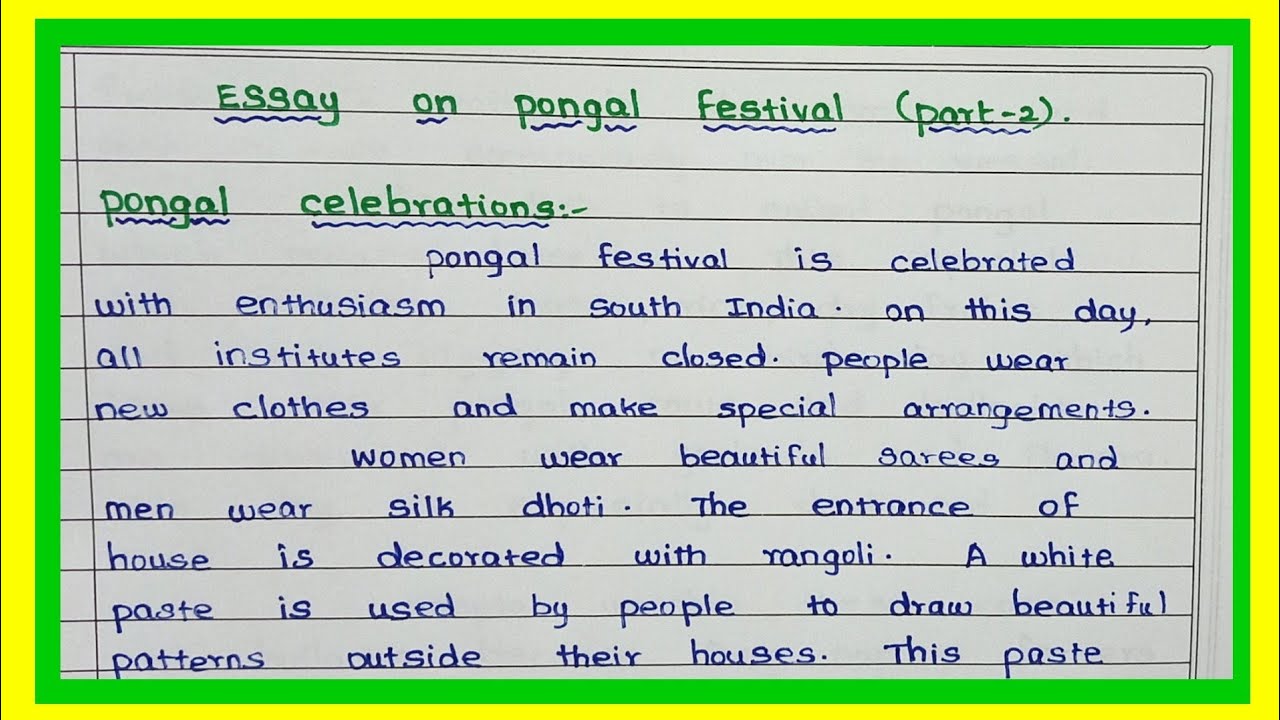 Essay on pongal Festival (part-2).
pongal celebrations:-
pongal festival is celebrated
with enthusiasm in south India. on this day,
all institutes remain closed. people wear
new clothes and make special arrangements.
women wear beautiful sarees and
men wear silk dhoti. The entrance of
house is decorated with rangoli. A white
paste is used by people to draw beautiful
patterns outside their houses. This paste